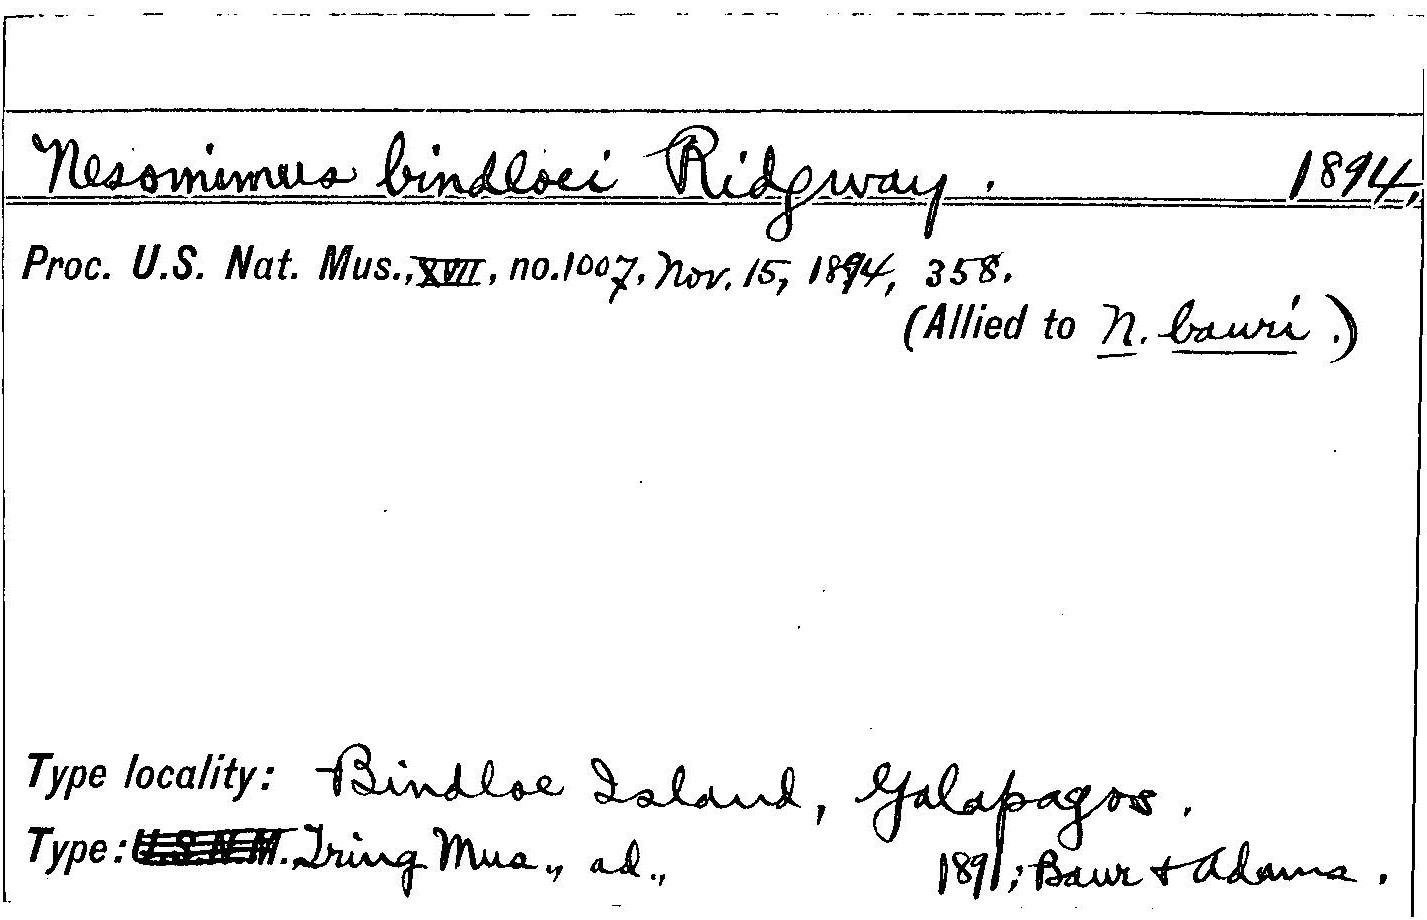 Nesomimus bindloei Ridgway. 1894,
Proc. U.S. Nat. Mus., XVII, no. 1007, Nov. 15, 1894, 358.
(Allied to N. bauri.)
Type locality: Bindloe Island, Galapagos.
Type: U.S.N.M. Tring Mus., ad., 1891; Baur + Adams.